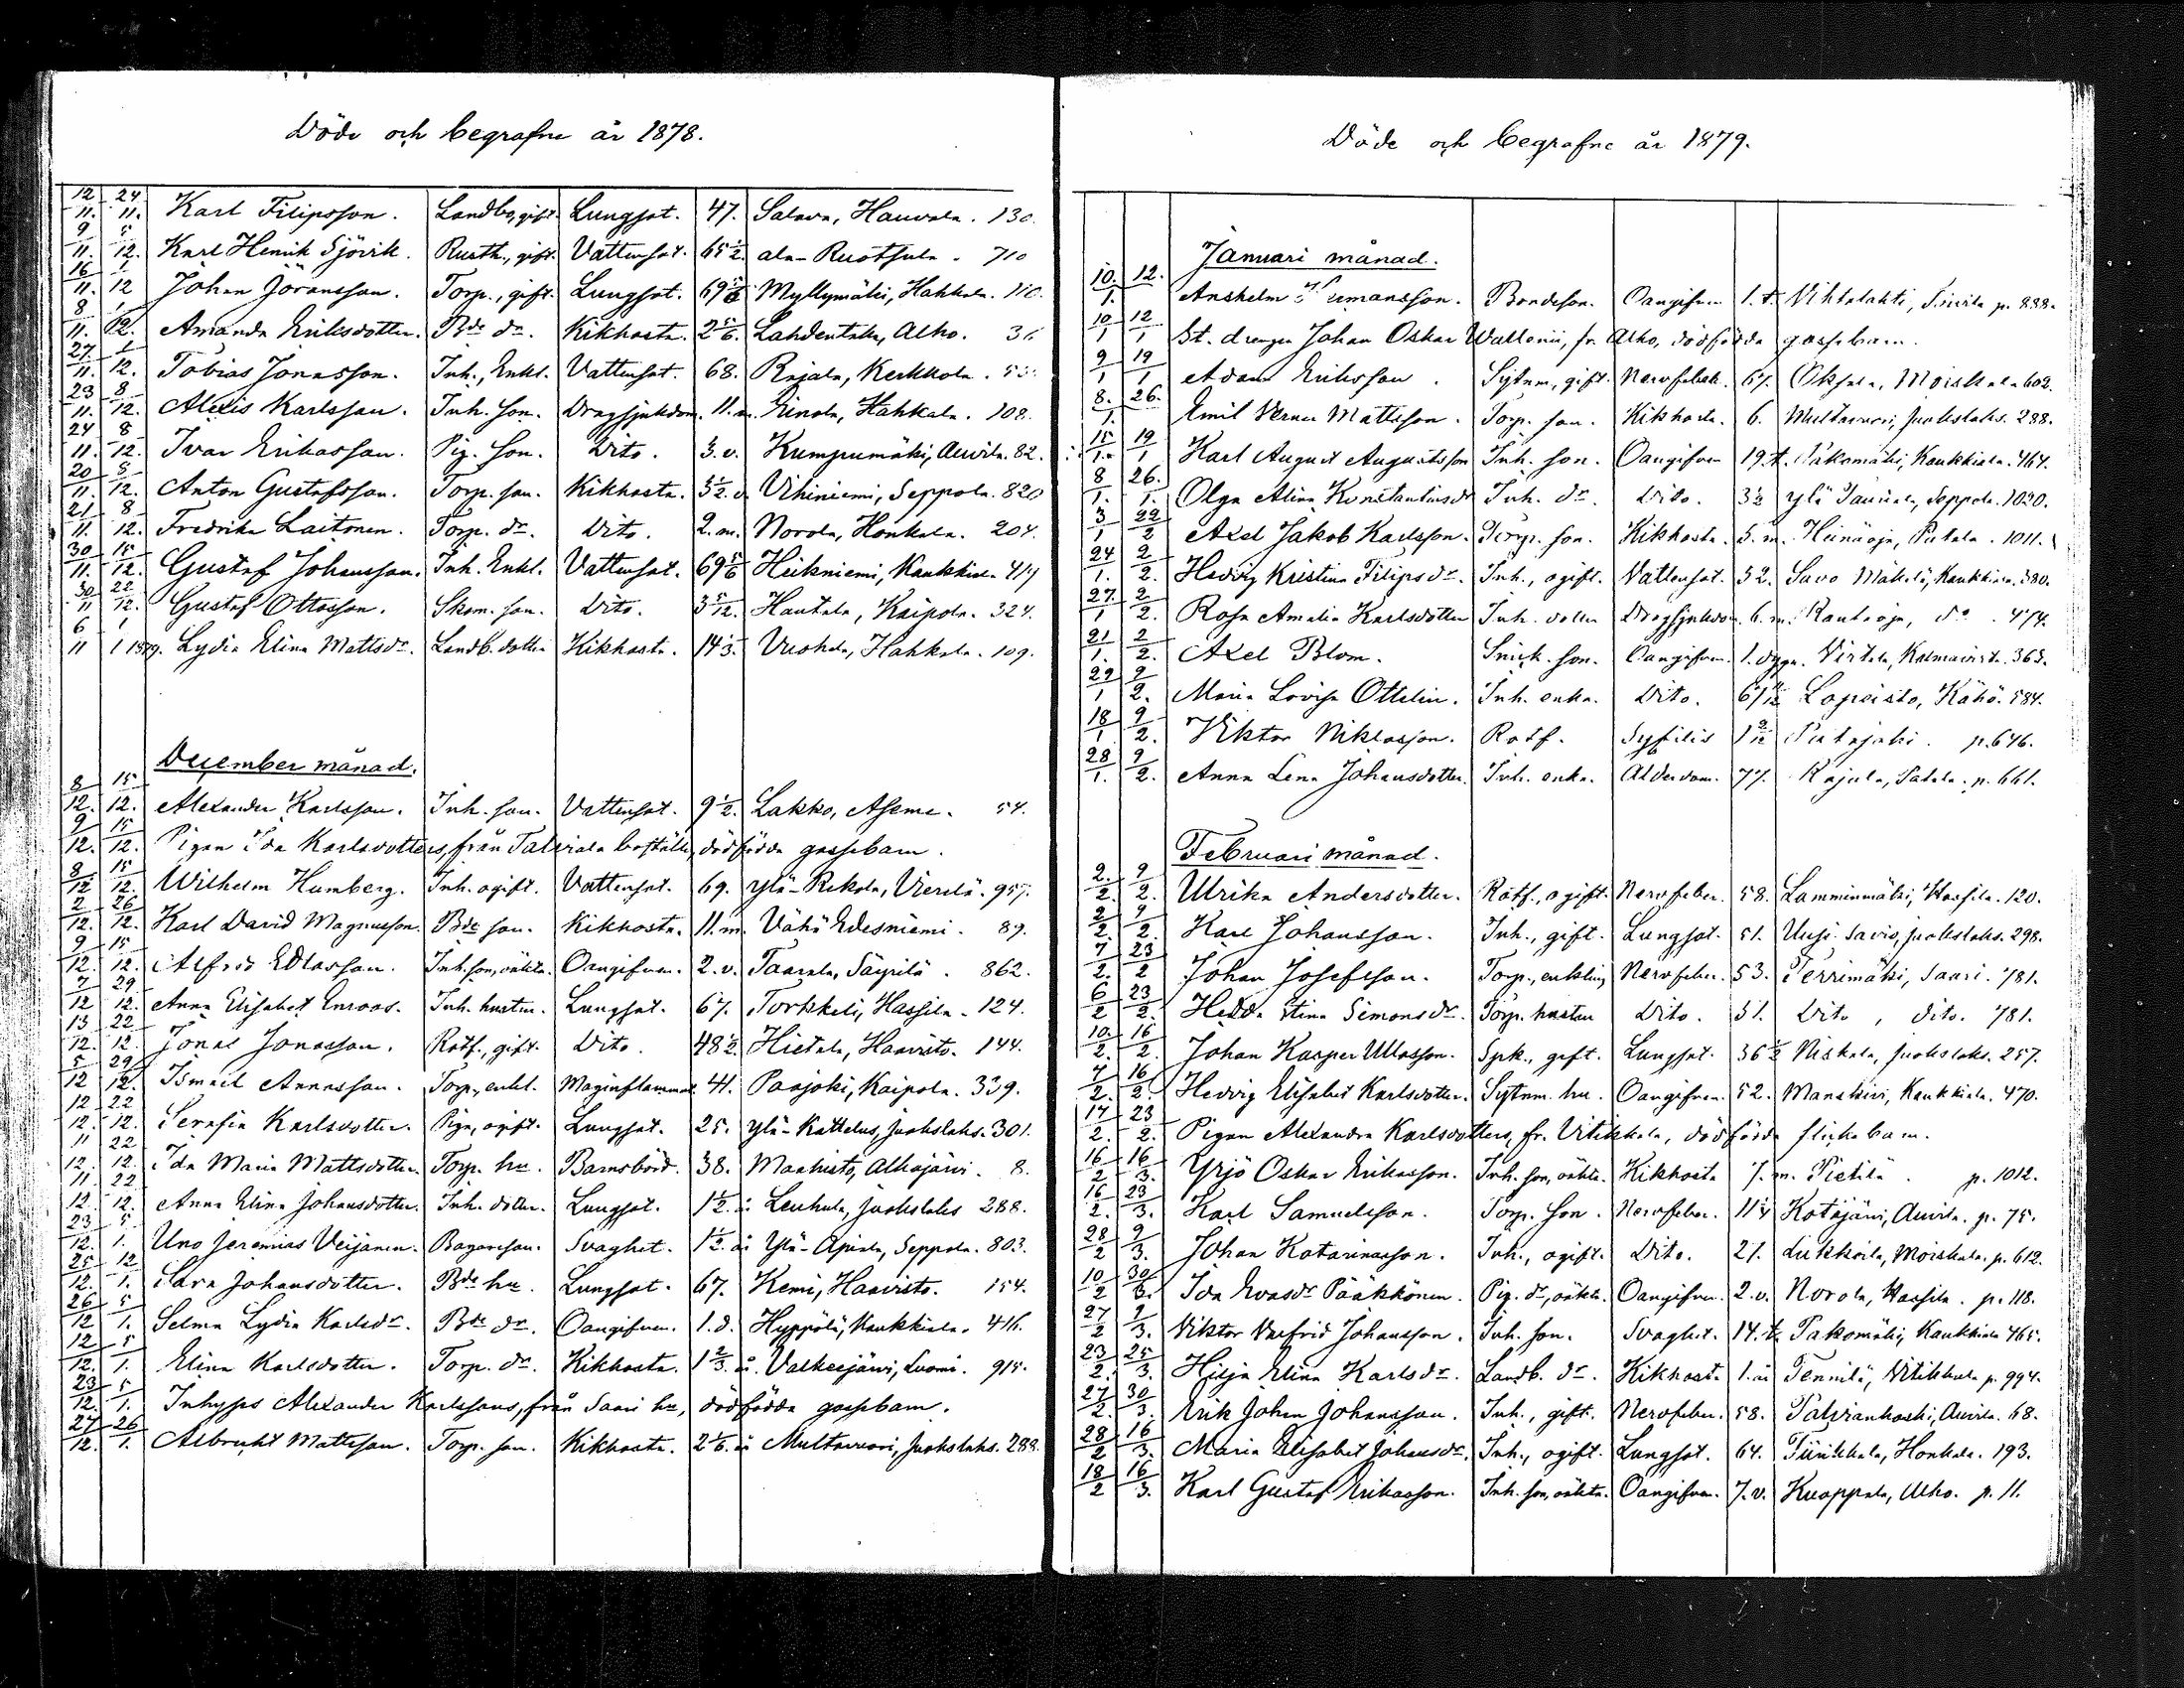 Döde och begrafne år 1878.
12/11. 24/11. Karl Filipsson. Landbo, gift. Lungsot. 47. Salava, Hauvala. 130.
9/11. 5/12. Karl Henrik Sjövik. Rusth., gift. Vattensot. 65 1/2. ala-Ruotsula. 710
16/11. 1/12 Johan Göransson. Torp., gift. Lungsot. 69 5/6 Myllymäki, Hahkala. 110.
8/11. 1/12. Amanda Eriksdotter. Bde dr. Kikhosta. 2 5/6. Lahdentaka, Alho. 36
27/11. 1/12. Tobias Jonasson. Inh., Enkl. Vattensot. 68. Rajala, Kerkkola.
23/11. 8/12. Alexis Karlsson. Inh. son. Dragsjukdom. 11. m. Einola, Hahkala. 108.
24/11. 8/12. Ivar Erikasson. Pig. son. Dito. 3. v. Kumpumäki, Auvila. 82.
20/11. 8/12. Anton Gustafsson. Torp. son. Kikhosta. 3 1/2. v. Vihiniemi, Seppola. 820
21/11. 8/12. Fredrika Laitonen. Torp. dr. Dito. 2. m. Norola, Honkala. 204.
30/11. 15/12. Gustaf Johansson. Inh. Enkl. Vattensot. 69 5/6 Heikniemi, Kaukkiala 414
30/11 22/12. Gustaf Ottosson. Skom. son. Dito. 3 5/12. Hautala, Kaipola. 324.
6/11 1/1 1879. Lydia Elina Mattsdr. Landb. dotter Kikhosta. 14 1/3. Vuohola, Hahkala. 109.
December månad.
8/12. 15/12. Alexander Karlsson. Inh. son. Vattensot. 9 1/2. Lakko, Aseme. 54.
9/12. 15/12. Pigan Ida Karlsdotters, från Talviala boställe, dödfödda gossebarn.
8/12 15/12. Wilhelm Humberg. Inh. ogift. Vattensot. 69. ylä-Rekola, Vierilä. 957.
2/12. 26/12. Karl David Magnusson. Bde son. Kikhosta. 11. m. Vähä Edesniemi. 89.
9/12. 15/12. Alfrid Edlasson. Inh. son, oäkta. Oangifven. 2. v. Taarala, Säyrilä. 862.
7/12 29/12. Anna Elisabet Enroos. Inh. hustru. Lungsot. 67. Torkkeli, Hassila. 124.
13/12. 22/12. Jonas Jonasson. Rotf., gift. Dito. 48 1/2. Hietala, Haavisto. 144.
5/12 29/12. Ismael Annasson. Torp., enkl. Maginflammat. 41. Paajoki, Kaipola. 339.
12/12. 22/12. Serafia Karlsdotter. Piga, ogift. Lungsot. 25. ylä-Kattelus, Juokslaks. 301.
11/12. 22/12. Ida Maria Mattsdotter. Torp. hu. Barnsbörd. 38. Manhisto, Alhojärvi. 8.
11./12. 22/12. Anna Elina Johansdotter. Inh. dotter. Lungsot. 1 1/2. å Leuhula, Juokslaks 288.
23/12. 5/1. Uno Jeremias Veijanen. Bagareson. Svaghet. 1 1/2. å Ylä-Apiala, Seppola. 803.
25/12. 12/1. Sara Johansdotter. Bde hu. Lungsot. 67. Kemi, Haavisto. 154.
26/12 5/1. Selma Lydia Karlsdr. Bde dr. Oangifven. 1. d. Hyppölä, Kaukkiala. 416.
12/12. 5/1. Elina Karlsdotter. Torp. dr. Kikhosta. 1 2/3. å. Valkeejärvi, Luomi. 915.
23/12. 5/1. Inhyses Alexander Karlssons, från Saari hu, dödfödda gossebarn.
27/12. 26/1. Albrecht Mattsson. Torp. son. Kikhosta. 2 1/6. å Multavuori, Juokslaks. 288.
Döde och begrafne år 1879.
Januari månad.
10./1. 12. Anshelm Bondeson. Oangifven 1. t. Vihtalahti, p. 888.
10/1 12/1 St. drengen Johan Oskar Wallenii, fr. Alho, dödfödda gossebarn.
9/1 19/1 Adam Eriksson. Sytnm, gift. Nervfeber. 67. Oksala, Moiskala 602.
8./1. 26. Emil Verner Mattsson. Torp. son. Kikhosta. 6. Multavuori, Juokslaks. 288.
15/1. 19/1 Karl August Augustsson Inh. son. Oangifven 19. t. Takomäki, Kaukkiala. 464.
8/1. 26./1. Olga Alina Konstantinsdr Inh. dr. Dito. 3 1/2 ylä Seppola. 1020.
3/1 22/2 Axel Jakob Karlsson. Torp. son. Kikhosta. 5. m. Heinäoja, 1011.
24/1. 2/2. Hedvig Kristina Filipsdr. Inh., ogift. Vattensot. 32. Savo Mäkelä, Kaukkiala. 380.
27/1 2/2. Rosa Amalia Karlsdotter Inh. dotter Dragsjukdom. 6. m. Rantaoja, do. 474.
21/1. 2/2. Axel Blom. Snick. son. Oangifven. 1. dygn. Virtala, Kalmavirta. 363.
29/1 2/2. Maria Lovisa Ottelin. Inh. enka. Dito. Lopeisto, Kähö. 584.
18/1 9/2. Viktor Niklasson. Rotf. Syfilis 1 9/12 Patajoki. p. 646.
28/1. 9/2. Anna Lena Johansdotter. Inh. enka. Ålderdom. 77. Rajala, p. 661.
Februari månad.
2./2. 9/2. Ulrika Andersdotter. Rotf., ogift. Nervfeber. 58. Lamminmäki, Hassila. 120.
2/2. 9/2. Karl Johansson. Inh., gift. Lungsot. 51. Uusi-Savio, Juokslaks. 298.
7/2. 23/2 Johan Josefsson. Torp., enkling Nervfeber. 53. Perrimäki, Saari. 781.
6/2 23/2. Hedda Stina Simonsdr. Torp. hustru Dito. 51. Dito, dito. 781.
10./2. 16/2. Johan Kasper Ullasson. Spk., gift. Lungsot. 36 1/2 Niskala, Juokslaks. 257.
7/2. 16/2. Hedvig Elisabet Karlsdotter. Sytnm. hu. Oangifven. 52. Manskivi, Kaukkiala. 470.
17/2. 23/2. Pigan Alexandra Karlsdotters, fr. Vitikkala, dödfödda flickebarn.
16/2 16/3. Yrjö Oskar Erikasson. Inh. son, oäkta. Kikhosta 7. m. Pietilä. p. 1012.
16/2. 23/3. Karl Samuelsson. Torp. son. Nervfeber. 11 1/4 Kotojärvi, Auvila. p. 75.
28/2 9/3. Johan Katarinasson. Inh., ogift. Dito. 21. Lukkoila, Moiskala. p. 612.
10/2 30/3. Ida Evasdr Pääkkönen. Pig. dr, oäkta. Oangifven. 2. v. Norola, Hassila. p. 118.
27/2 9/3. Viktor Varfrid Johansson. Inh. son. Svaghet. 14. t. Takomäki, Kaukkiala 465.
23/2. 25/3. Hilja Elina Karlsdr. Landb. dr. Kikhosta 1. å Tennilä, Vitikkala p. 994.
27/2. 30/3. Erik Johan Johansson. Inh., gift. Nervfeber. 58. Patviankoski, Auvila. 68.
28/2 16/3. Maria Elisabet Johansdr. Inh., ogift. Lungsot. 64. Tiirikkala, Honkala. 193.
18/2 16/3. Karl Gustaf Erikasson. Inh. son, oäkta. Oangifven. 7. v. Kuoppala, Alho. p. 11.